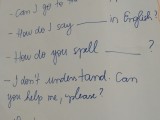 - Can I go to
- How do I say ______ in English?
- How do you spell ______ ?
- I don't understand. Can
you help me, please?